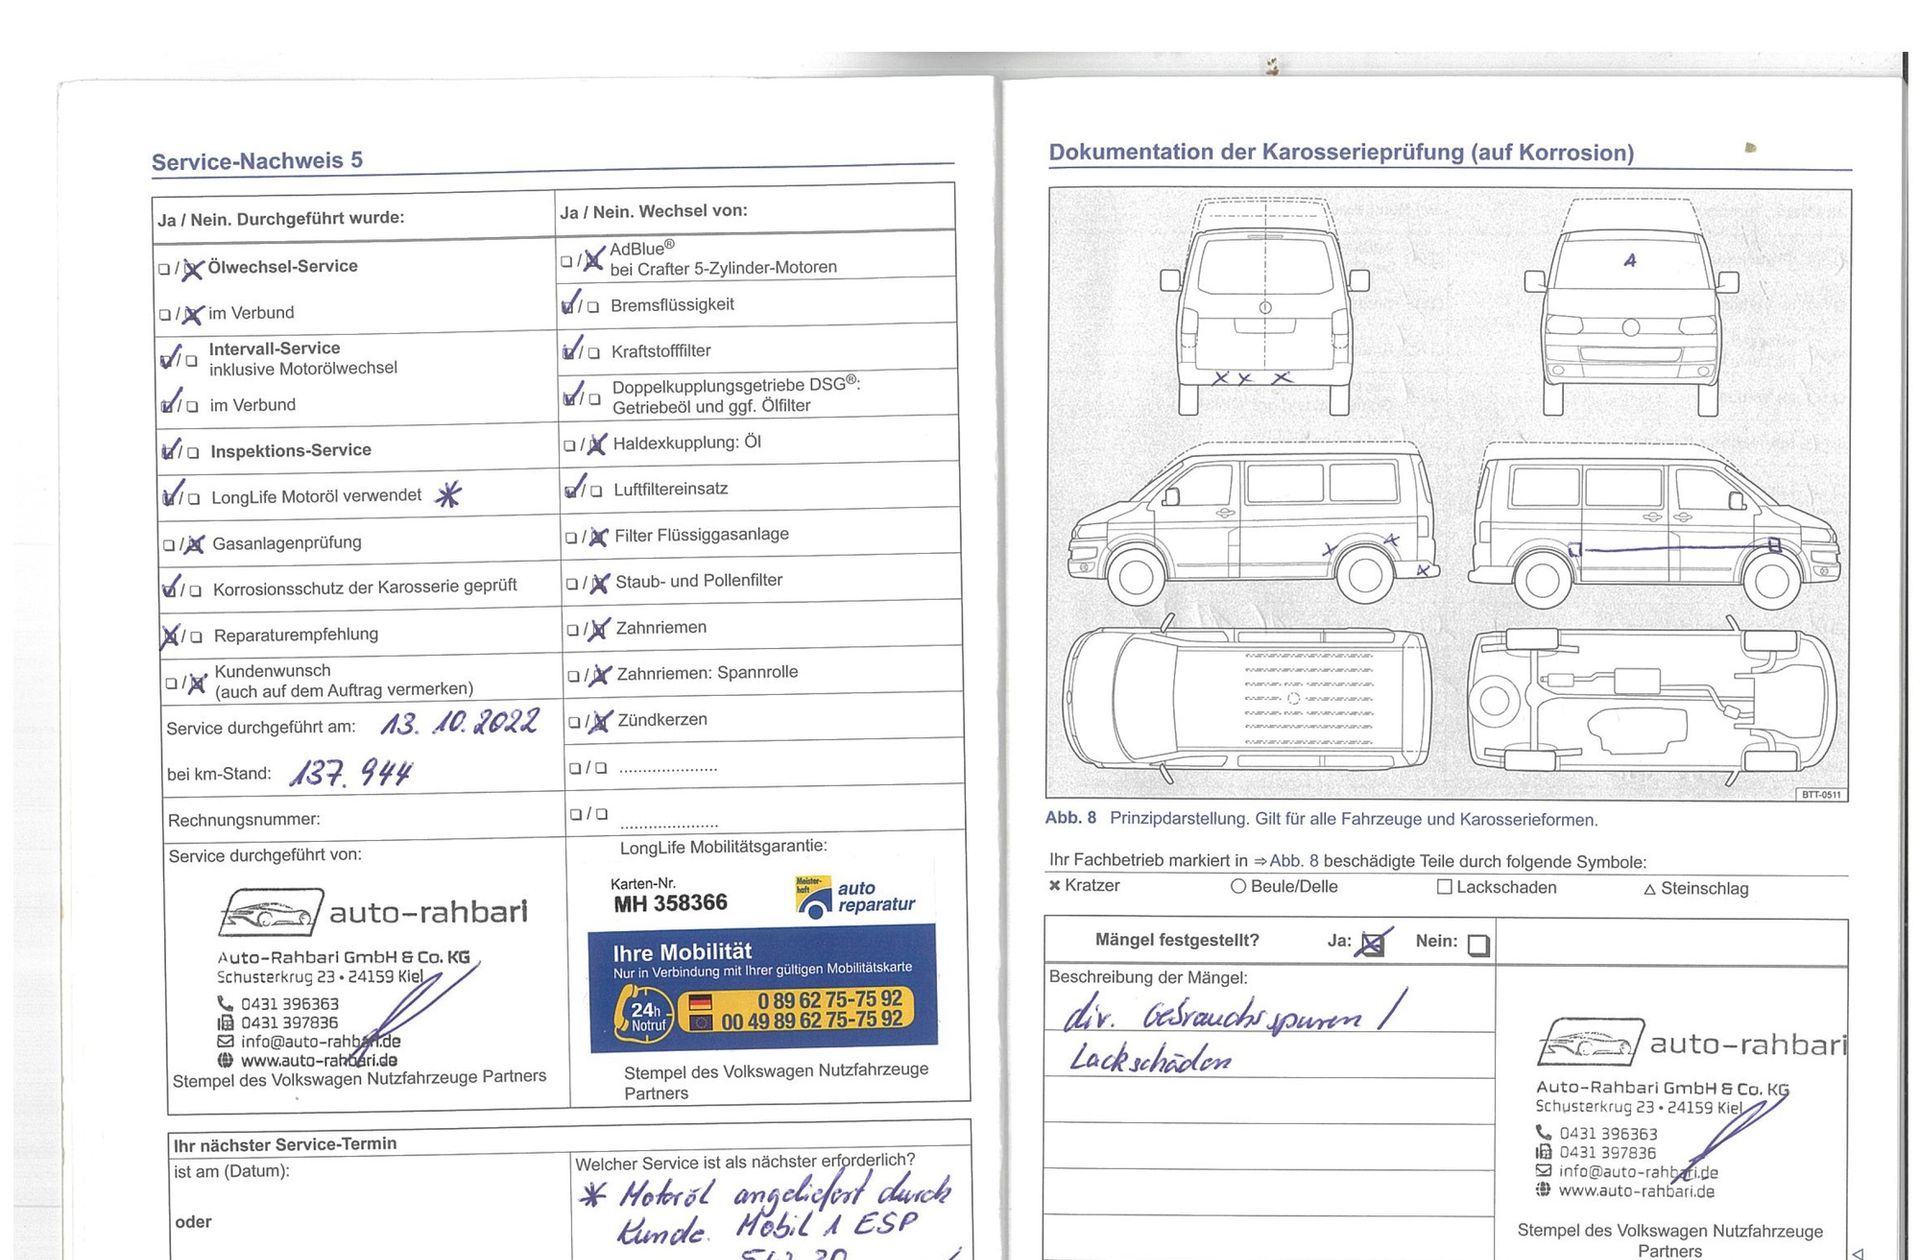 Service-Nachweis 5
Ja / Nein. Durchgeführt wurde:
☐ / ☒ Ölwechsel-Service
☐ / ☒ im Verbund
☑ / ☐ Intervall-Service
inklusive Motorölwechsel
☑ / ☐ im Verbund
☑ / ☐ Inspektions-Service
☑ / ☐ LongLife Motoröl verwendet *
☐ / ☒ Gasanlagenprüfung
☑ / ☐ Korrosionsschutz der Karosserie geprüft
☒ / ☐ Reparaturempfehlung
☐ / ☒ Kundenwunsch
(auch auf dem Auftrag vermerken)
Service durchgeführt am: 13. 10. 2022
bei km-Stand: 137. 944
Rechnungsnummer:
Service durchgeführt von:
auto-rahbari
Auto-Rahbari GmbH & Co. KG
Schusterkrug 23 • 24159 Kiel
0431 396363
0431 397836
info@auto-rahbari.de
www.auto-rahbari.de
Stempel des Volkswagen Nutzfahrzeuge Partners
Ja / Nein. Wechsel von:
☐ / ☒ AdBlue®
bei Crafter 5-Zylinder-Motoren
☑ / ☐ Bremsflüssigkeit
☑ / ☐ Kraftstofffilter
☑ / ☐ Doppelkupplungsgetriebe DSG®:
Getriebeöl und ggf. Ölfilter
☐ / ☒ Haldexkupplung: Öl
☑ / ☐ Luftfiltereinsatz
☐ / ☒ Filter Flüssiggasanlage
☐ / ☒ Staub- und Pollenfilter
☐ / ☒ Zahnriemen
☐ / ☒ Zahnriemen: Spannrolle
☐ / ☒ Zündkerzen
☐ / ☐ .....................
☐ / ☐ .....................
LongLife Mobilitätsgarantie:
Karten-Nr.
MH 358366
Meister-
haft
auto
reparatur
Ihre Mobilität
Nur in Verbindung mit Ihrer gültigen Mobilitätskarte
24h
Notruf
0 89 62 75-75 92
00 49 89 62 75-75 92
Stempel des Volkswagen Nutzfahrzeuge
Partners
Ihr nächster Service-Termin
ist am (Datum):
oder
Welcher Service ist als nächster erforderlich?
* Motoröl angeliefert durch
Kunde. Mobil 1 ESP
5W 30
Dokumentation der Karosserieprüfung (auf Korrosion)
BTT-0511
Abb. 8 Prinzipdarstellung. Gilt für alle Fahrzeuge und Karosserieformen.
Ihr Fachbetrieb markiert in ⇒ Abb. 8 beschädigte Teile durch folgende Symbole:
× Kratzer ○ Beule/Delle □ Lackschaden △ Steinschlag
Mängel festgestellt? Ja: ☒ Nein: ☐
Beschreibung der Mängel:
div. Gebrauchsspuren /
Lackschäden
auto-rahbari
Auto-Rahbari GmbH & Co. KG
Schusterkrug 23 • 24159 Kiel
0431 396363
0431 397836
info@auto-rahbari.de
www.auto-rahbari.de
Stempel des Volkswagen Nutzfahrzeuge
Partners